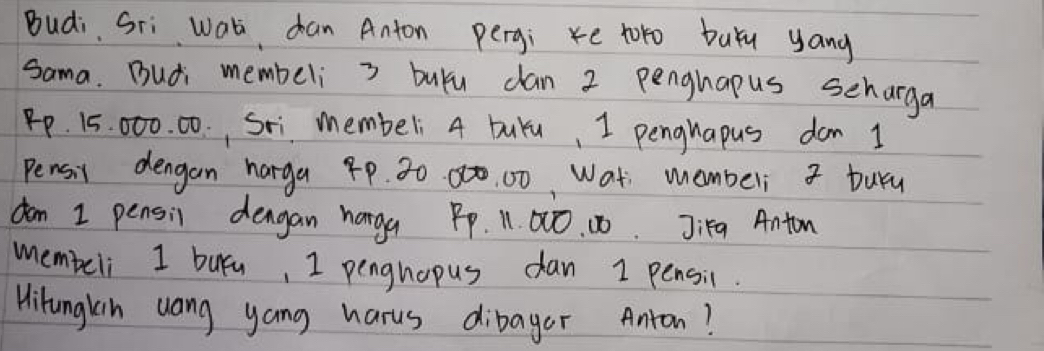 Budi, Sri, Wati, dan Anton pergi ke toko buku yang
Sama. Budi membeli 3 buku dan 2 penghapus seharga
Rp. 15.000.00., Sri membeli 4 buku, 1 penghapus dan 1
Pensil dengan harga Rp. 20.000,00, Wati membeli 2 buku
dan 1 pensil dengan harga Rp. 11.000.00. Jika Anton
Membeli 1 buku, 1 penghapus dan 1 pensil.
Hitunglah uang yang harus dibayar Anton?